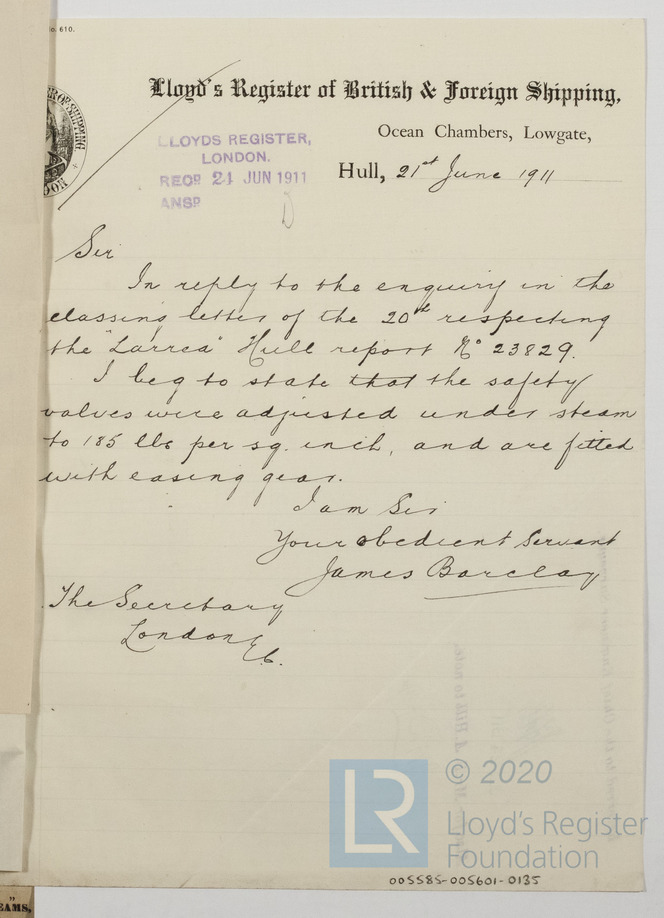 No. 610.
Lloyd's Register of British & Foreign Shipping,
Ocean Chambers, Lowgate,
Hull, 21st June 1911
LLOYDS REGISTER,
LONDON.
RECD 24 JUN 1911
ANSD
Sir
In reply to the enquiry in the
classing letter of the 20th respecting
the "Larrea" Hull report No 23829.
I beg to state that the safety
valves were adjusted under steam
to 185 lbs per sq. inch, and are fitted
with easing gear.
I am Sir
Your obedient Servant
James Barclay
The Secretary
London E.C.
© 2020
LR
Lloyd's Register
Foundation
005585-005601-0135
EAMS,